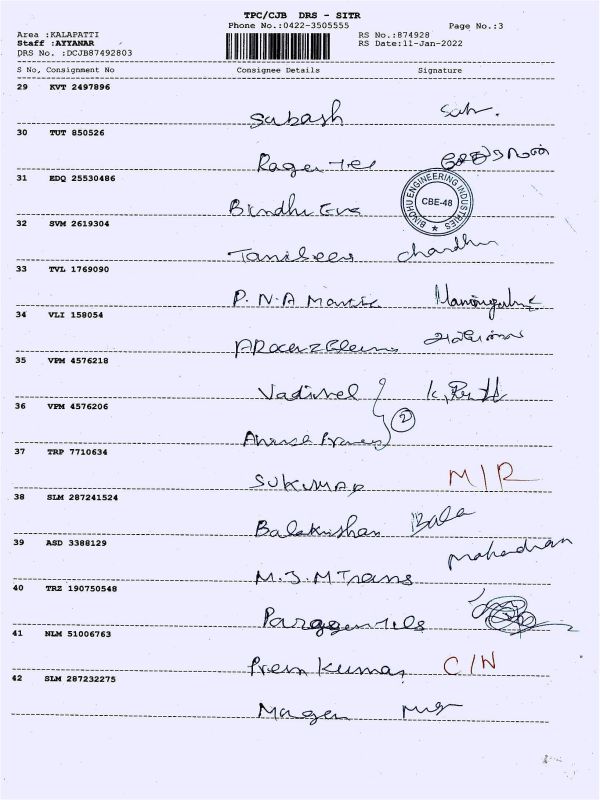 TPC/CJB DRS - SITR
Phone No.:0422-3505555
Page No.:3
Area :KALAPATTI
RS No.:874928
Staff :AYYANAR
RS Date:11-Jan-2022
DRS No. :DCJB87492803
S No, Consignment No Consignee Details Signature
29 KVT 2497896
Subash Sub.
30 TUT 850526
31 EDQ 25530486
BINDHU ENGINEERING INDUSTRIES
CBE-48
Bindhu Eng
32 SVM 2619304
Chandhru
33 TVL 1769090
P.N.A
34 VLI 158054
35 VPM 4576218
Vadivel
2
36 VPM 4576206
37 TRP 7710634
SUKUMAR M/R
38 SLM 287241524
Balakrishan Bala
39 ASD 3388129
M.J.M Trans
40 TRZ 190750548
41 NLM 51006763
Prem Kumar C/N
42 SLM 287232275